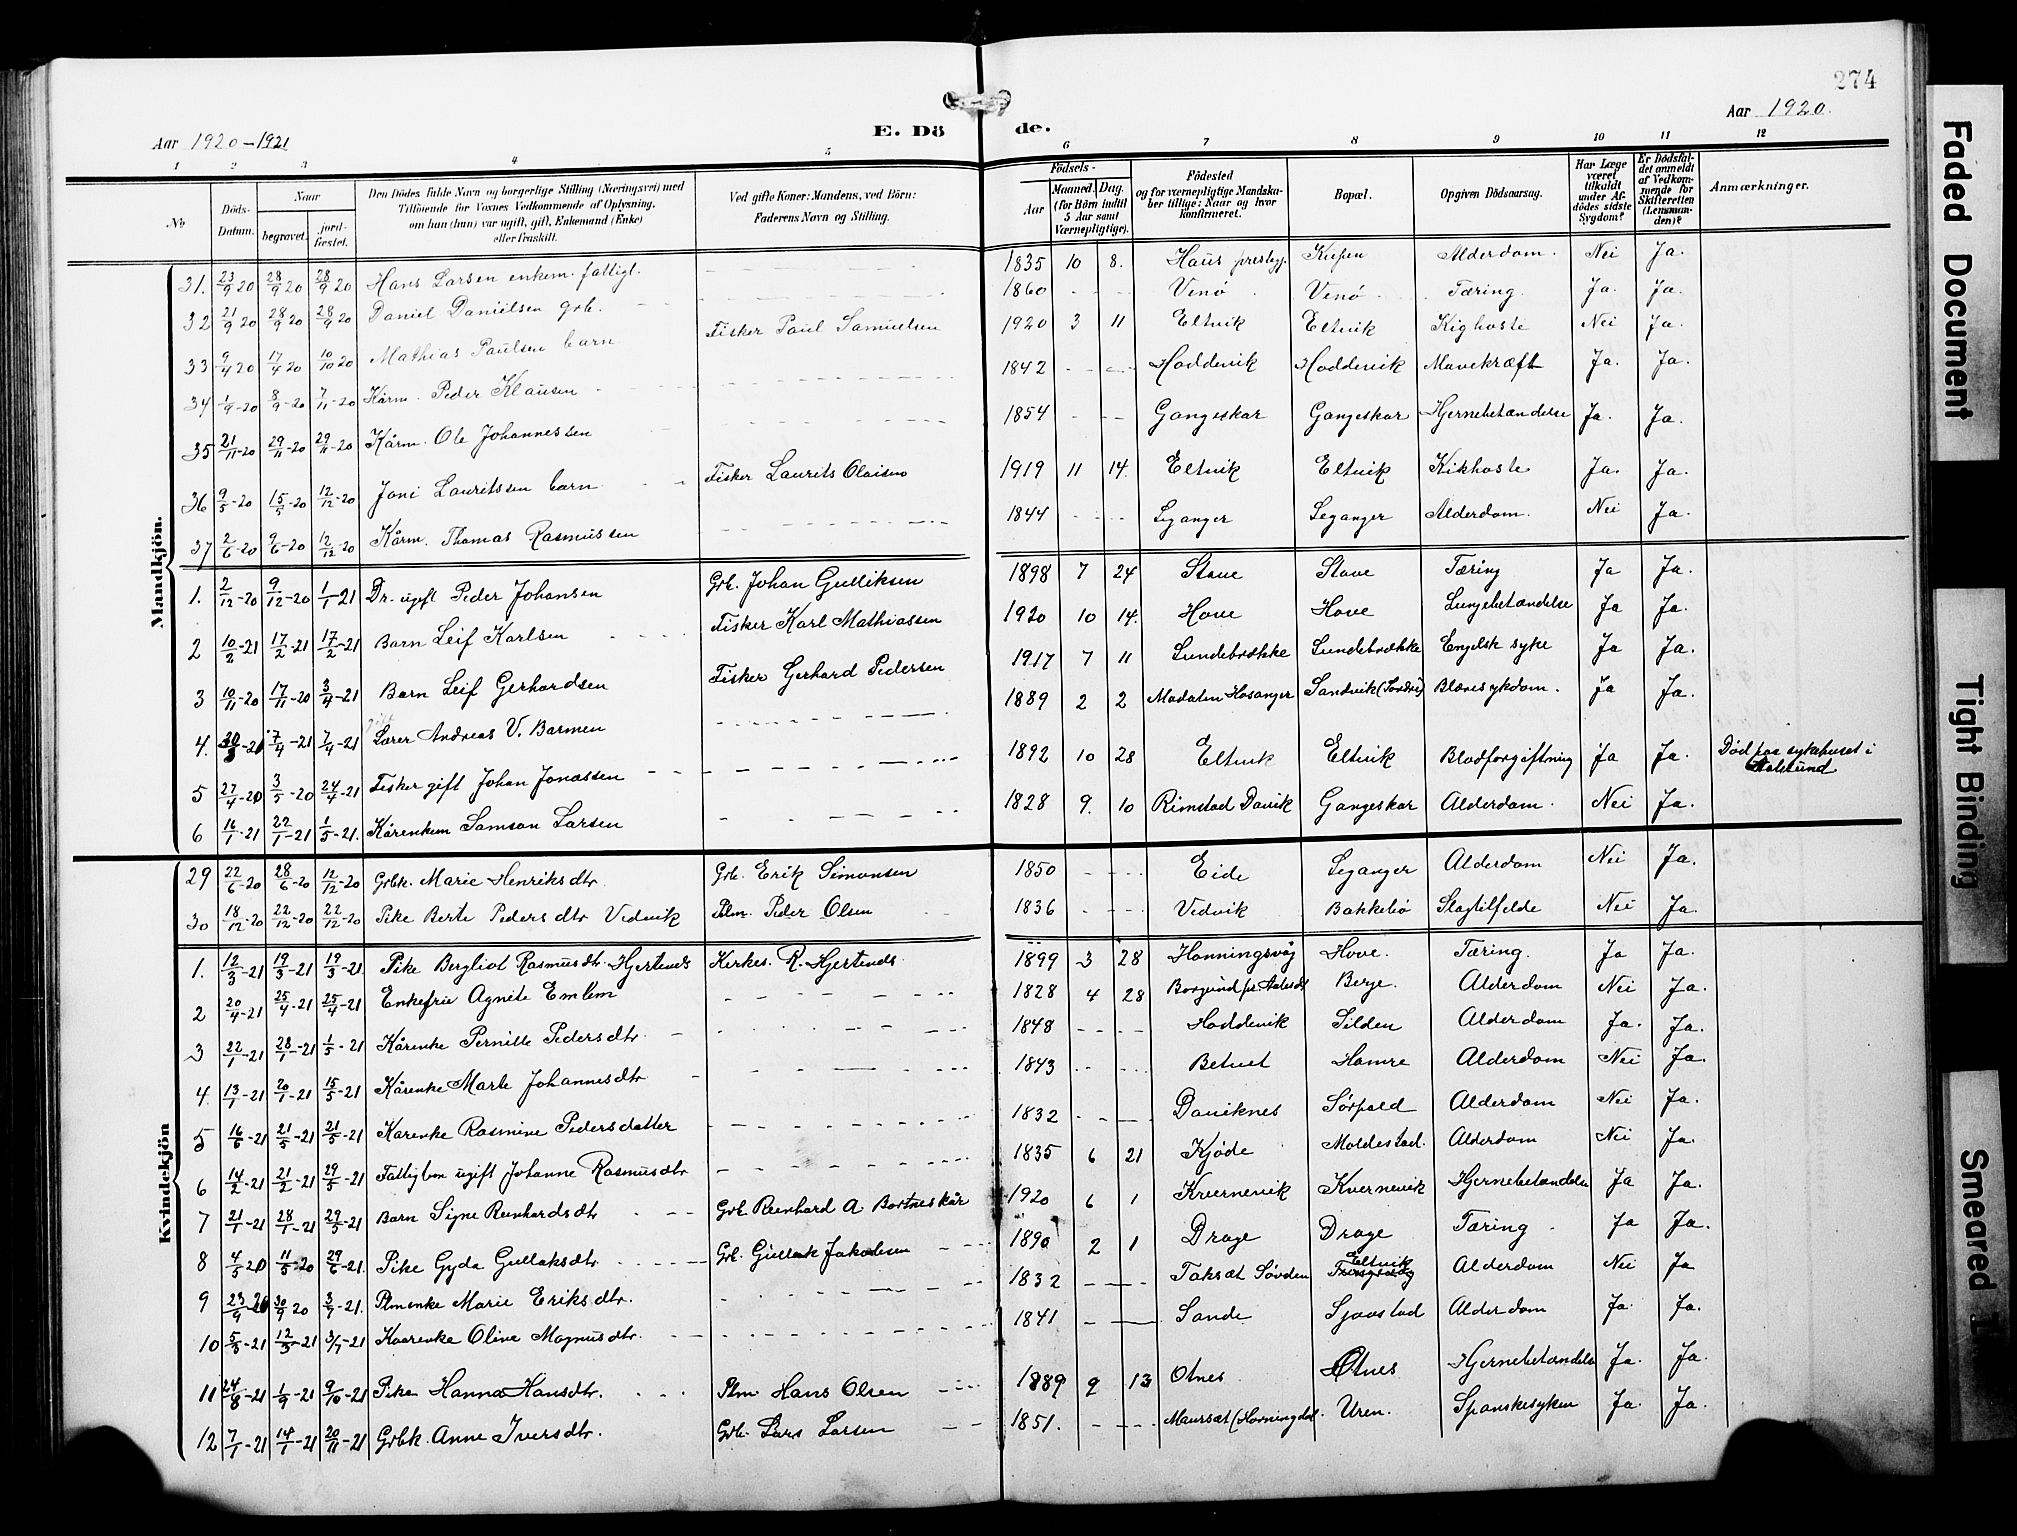 274
Aar 1920-1921
E. Dö de.
Aar 1920.
1 2 3 4 5 6 7 8 9 10 11 12
No
Döds-Datum.
Naar
begravet.
jord-fæstet.
Den Dödes fulde Navn og borgerlige Stilling (Næringsvei) med
Tilföiende for Voxnes Vedkommende af Oplysning,
om han (hun) var ugift, gift, Enkemand (Enke)
eller fraskilt.
Ved gifte Koner: Mandens, ved Börn:
Faderens Navn og Stilling.
Födsels-
Aar
Maaned. Dag.
(for Börn indtil
5 Aar samt
Værnepligtige).
Födested
og for værnepligtige Mandska-
ber tillige: Naar og hvor
konfirmeret.
Bopæl.
Opgiven Dödsaarsag.
Har Læge
været
tilkaldt
under Af-
dödes sidste
Sygdom?
Er Dödsfal-
det anmeldt
af Vedkom-
mende for
Skifteretten
(Lensman-
den)?
Anmærkninger.
Mandkjön.
31. 23/9 20 28/9 20 28/9 20 Hans Larsen enkem. fattigl. 1835 10 8. Haus prestgj. Alderdom. Nei Ja.
32 21/9 20 28/9 20 28/9 20 Daniel Danielsen grb. 1860 Venø Venø Tæring. Ja. Ja.
33 9/4 20 17/4 20 10/10 20 Mathias Paulsen barn Fisker Paul Samuelsen 1920 3 11 Eltvik Eltvik Kighoste Nei Ja.
34 1/9-20 8/9-20 7/11-20 Kårm. Peder Klausen 1842 Hoddevik Hoddevik Mavekræft Ja. Ja.
35 21/11-20 29/11-20 29/11-20 Kårm. Ole Johannessen 1854 Gangeskar Gangeskar Hjernebetændelse Ja. Ja.
36 9/5-20 15/5-20 12/12-20 Joni Lauritssen barn Fisker Laurits Olaisen 1919 11 14. Eltvik Eltvik Kikhoste Ja. Ja.
37 2/6-20 9/6-20 12/12-20 Kårm. Thomas Rasmussen 1844 Leganger Leganger Alderdom. Nei Ja.
1. 2/12-20 9/12-20 1/1-21 Dr. ugft Peder Johansen Grb. Johan Gulliksen 1898 7 24 Stave Stave Tæring Ja Ja.
2 10/2-21 17/2-21 17/2-21 Barn Leif Karlsen Fisker Karl Mathiassen 1920 10 14. Hove Hove Lungebetændelse Ja Ja.
3 10/11-20 17/11-20 3/4-21 Barn Leif Gerhardsen Fisker Gerhard Pedersen 1917 7 11 Lundebrække Lundebrække Engelsk syke Ja Ja.
4. 30/3-21 7/4-21 7/4-21 gift Lærer Andreas V. Barmen 1889 2 2 Madalen Hosanger Sandvik (Tordvs) Blæresykdom. Ja Ja.
5 27/4-20 3/5-20 24/4-21 Fisker gift Johan Jonassen 1892 10 28 Eltvik Eltvik Blodforgiftning Ja Ja. Død paa sykehuset i
Aalesund
6 16/1-21 22/1-21 1/5-21. Kårenkem Samson Larsen 1828 9. 10 Rimstad Davik Gangeskar Alderdom. Nei Ja.
Kvindekjön
29 22/6-20 28/6-20 12/12-20 Grbk. Marie Henriksdtr. Grb. Erik Simonsen 1850 Eide Leganger Alderdom Nei Ja.
30 18/12-20 22/12-20 22/12-20 Pike Berte Pedersdtr Vedvik Plm. Peder Olsen 1836 Vedvik Bakkebø Slagtilfelde Nei Ja.
1. 12/3-21 19/3-21 19/3-21 Pike Bergliot Rasmusdtr. Hjertenes Kirkes. R. Hjertenes. 1899 3 28 Honningsvåg Hove. Tæring. Ja Ja.
2 20/4-21 25/4-21 25/4-21 Enkefrue Agnete Emlem 1828 4 28 Borgund pr. Aalesd Berge. Alderdom Nei Ja.
3 22/1-21 28/1-21 1/5-21 Kårenke Pernille Pedersdtr. 1848 Hoddevik Silden Alderdom Ja. Ja.
4. 13/1-21 20/1-21 15/5-21 Kårenke Marte Johannesdtr 1843 Betuet Hamre Alderdom Nei Ja.
5 16/6-21 21/5-21 21/5-21 Karenke Rasmine Pedersdatter 1832 Daviknes Sørpold Alderdom Nei Ja.
6 14/2-21 21/2-21 29/5-21 Fattiglem ugift Johanne Rasmusdtr 1835 6 21 Kjøde Moldestad. Alderdom Nei Ja.
7 21/1-21 28/1-21 29/5-21 Barn Signe Reinhardsdtr Grb. Reinhard A Bortneskår 1920 6 1 Kvernevik Kvernevik Hjernebetændelse Ja Ja.
8 4/5 20 11/5 20 29/6-21. Pike Gyda Gullaksdtr. Grb. Gullak Jakobsen 1890 2 1 Drage Drage Tæring Ja Ja.
9 23/9-20 30/9 20 3/7-21. Plmenke Marie Eriksdtr. 1832 Taksæt Søvden Eltvik Alderdom Nei Ja
10 5/3-21 12/3-21 3/7-21 Kaarenke Oline Magnusdtr. 1841 Sande Sjaastad Alderdom Ja. Ja.
11 24/8-21 1/9-21 9/10-21 Pike Hanna Hansdtr. Plm Hans Olsen 1889 9 13 Otnes Otnes Hjernebetændelse Ja. Ja.
12 7/1-21 14/1-21 20/11-21 Grbk. Anne Iversdtr. Grb. Lars Larsen 1851. Maursæt (Horningdal. Uren. Spanskesyken Ja. Ja.
Faded Document
Tight Binding
Smeared